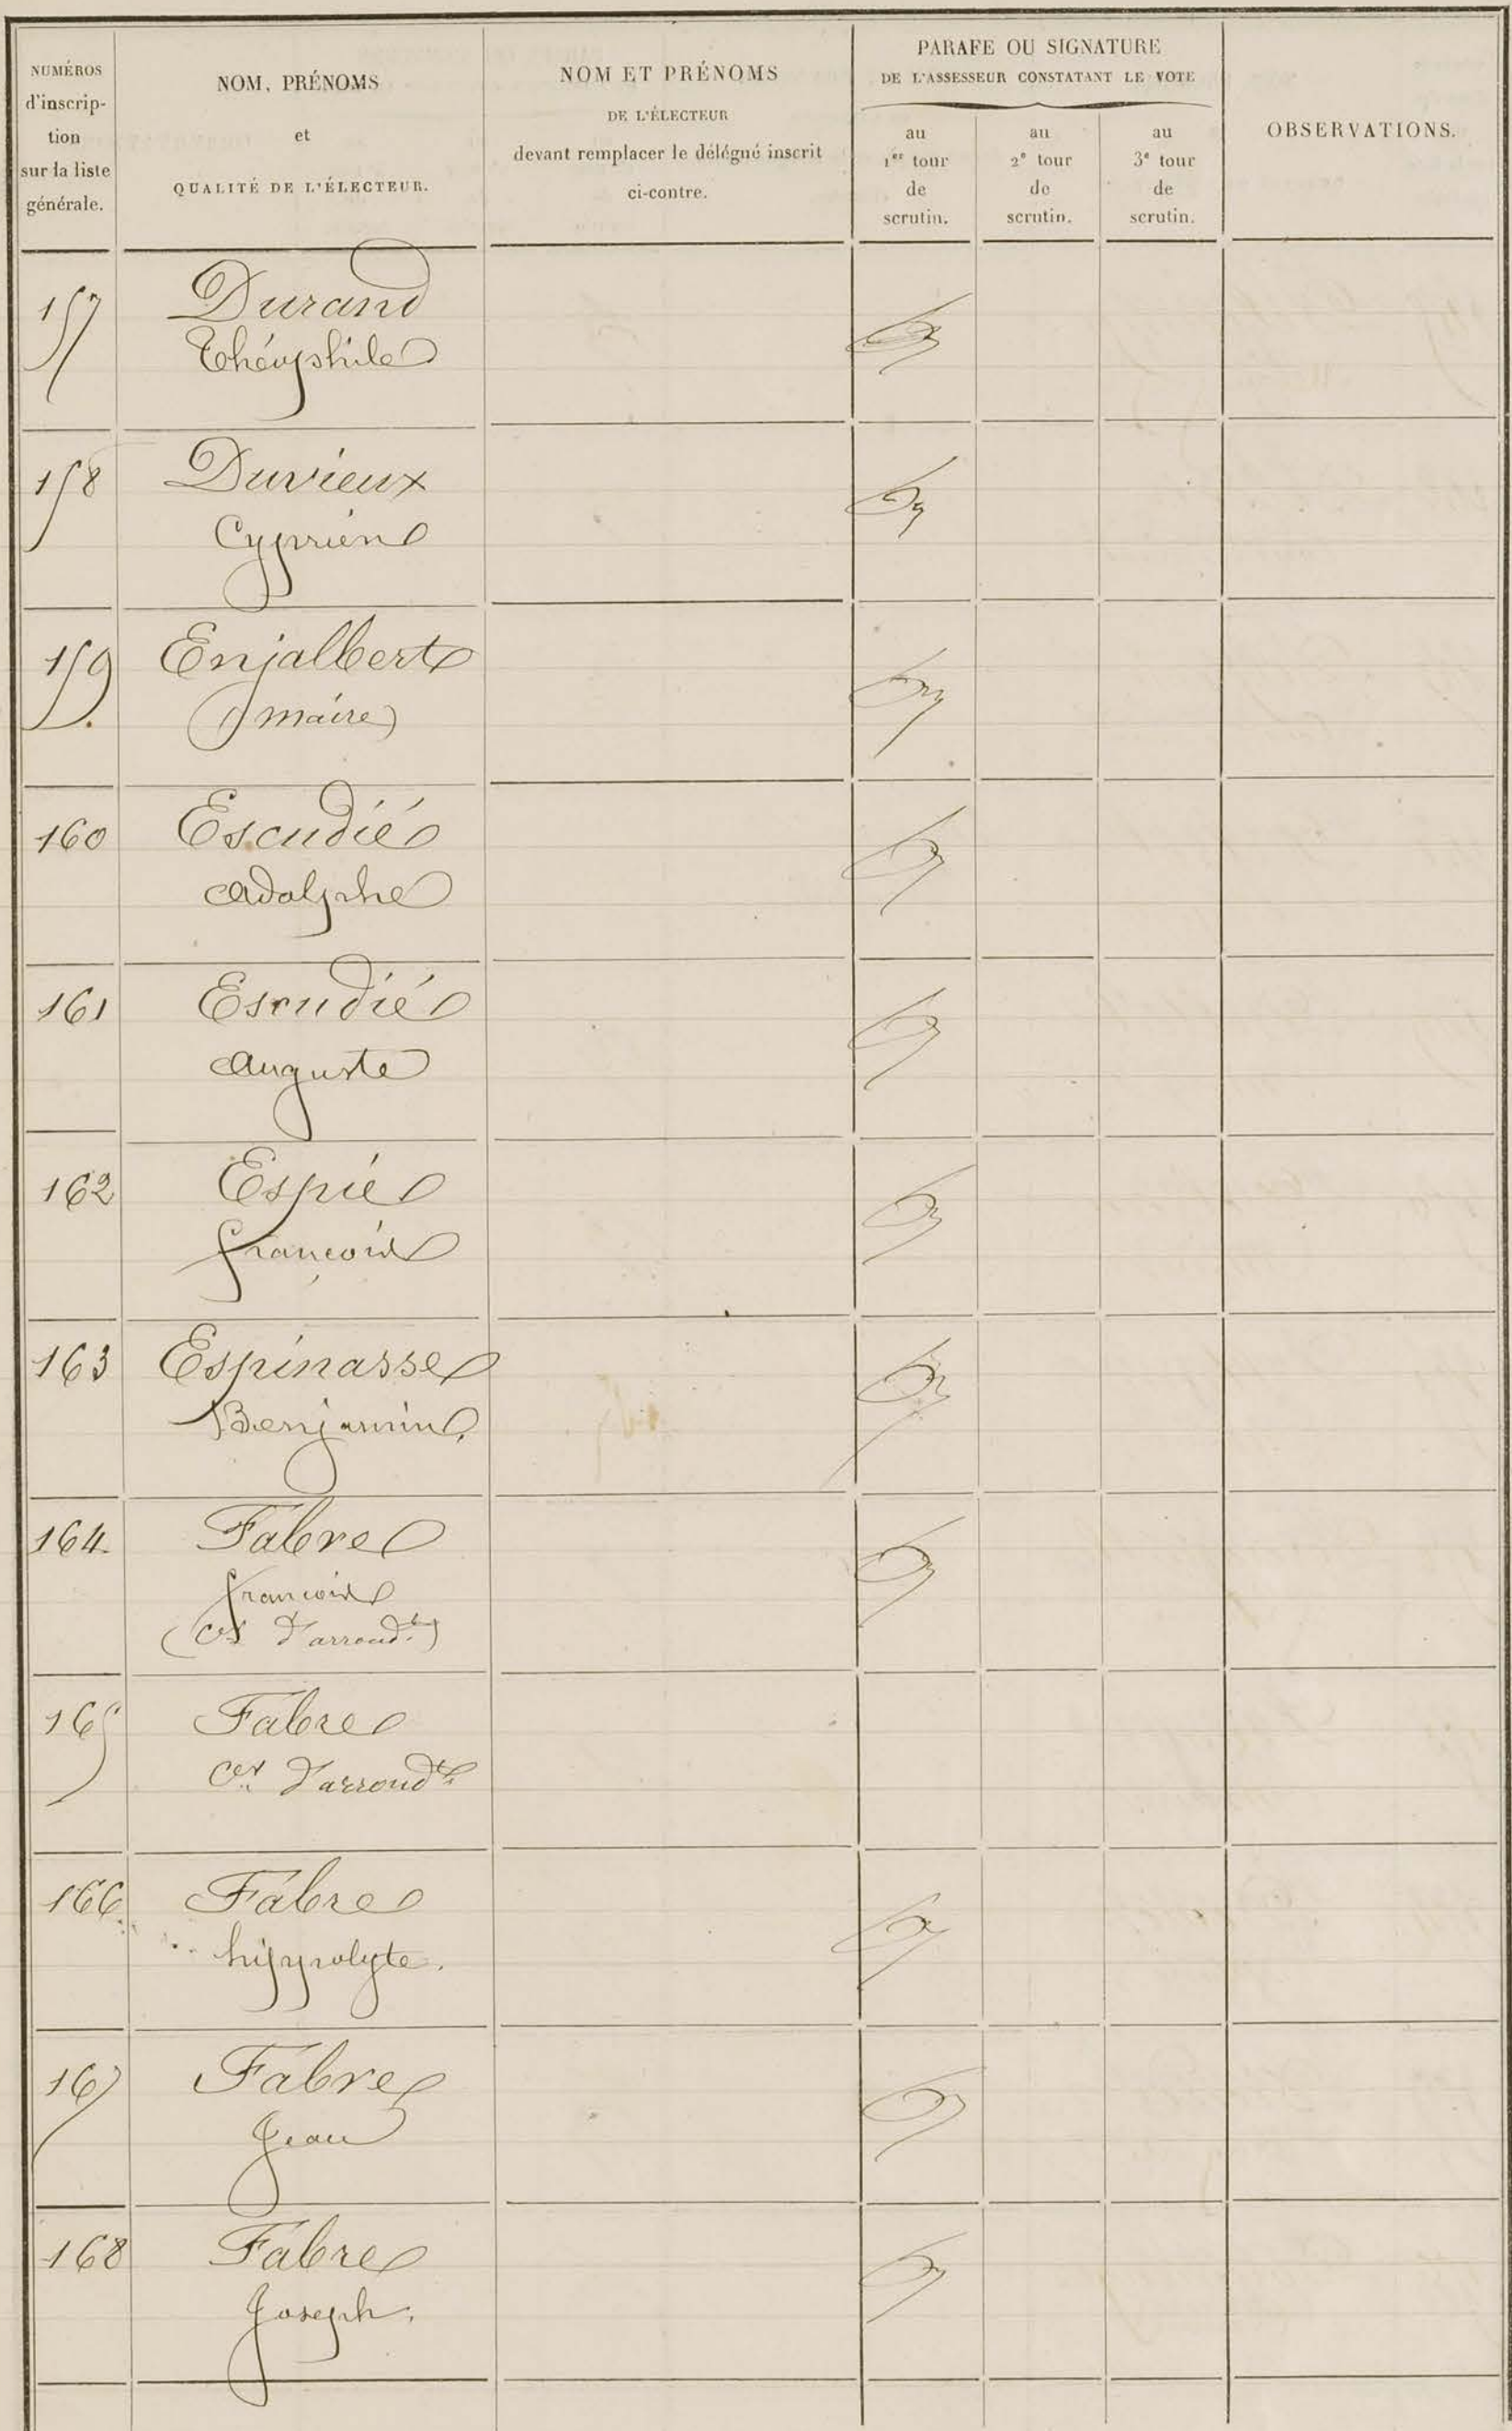 NUMÉROS
d'inscrip-
tion
sur la liste
générale.
NOM, PRÉNOMS
et
QUALITÉ DE L'ÉLECTEUR.
NOM ET PRÉNOMS
DE L'ÉLECTEUR
devant remplacer le délégué inscrit
ci-contre.
PARAFE OU SIGNATURE
DE L'ASSESSEUR CONSTATANT LE VOTE
au
1er tour
de
scrutin.
au
2e tour
de
scrutin.
au
3e tour
de
scrutin.
OBSERVATIONS.
157 Durand
Théophile
158 Duvieux
Cyprien
159 Enjalbert
(maire)
160 Escudié
Adolphe
161 Escudié
Auguste
162 Espié
françois
163 Espinasse
Benjamin.
164 Fabre
francois
(cer d'arrondt)
165 Fabre
Cer d'arrondt
166 Fabre
hippolyte.
167 Fabre
Jean
168 Fabre
Joseph.